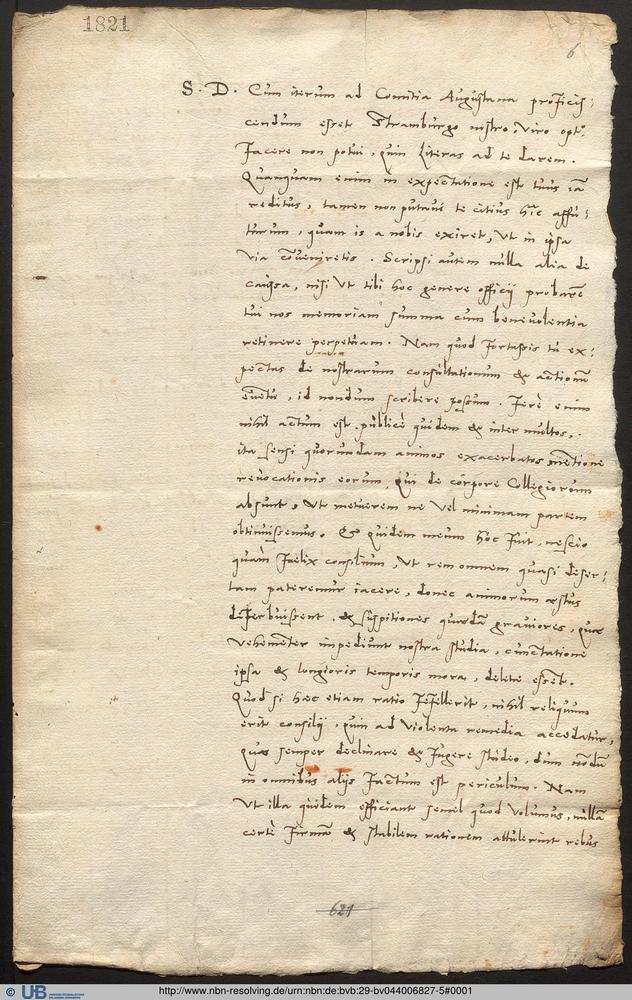 1821
6
S. D. Cum iterum ad Comitia Augustana proficis:
cendum esset Stramburgo nostro, viro opt:
facere non potui, quin literas ad te darem.
Quanquam enim in expectatione est tuus iā
reditus, tamen non putaui te citius hīc affu:
turum, quam is a nobis exiret, ut in ipsa
via cōueniretis. Scripsi autem nulla alia de
caussa, nisi ut tibi hoc genere officij probarē
tui nos memoriam summa cum beneuolentia
retinere perpetuam. Nam quod fortassis tu ex:
pectas de nostrarum consultationum & actionū
euētu, id nondum scribere possum. Ferè enim
nihil actum est, publicè quidem & inter multos,
ita sensi quorundam animos exacerbatos mētione
reuocationis eorum, qui de corpore Collegiorum
absunt, ut metuerem ne vel minimam partem
obtinuissemus. Et quidem meum hoc fuit, nescio
quàm foelix consilium, ut rem omnem quasi deser:
tam pateremur iacere, donec animorum aestus
deferbuissent, & suspitiones quaedā grauiores, quae
vehemēter impediunt nostra studia, cunctatione
ipsa & longioris temporis mora, deletae essēt.
Quod si haec etiam ratio fefellerit, nihil reliquum
erit consilij, quin ad violenta remedia accedatur,
quae semper declinare & fugere studeo, dum nōdū
in omnibus alijs factum est periculum. Nam
ut illa quidem efficiant semel quod volumus, nullā
certè firmā & stabilem rationem attulerint rebus
621
© UB
http://www.nbn-resolving.de/urn:nbn:de:bvb:29-bv044006827-5#0001